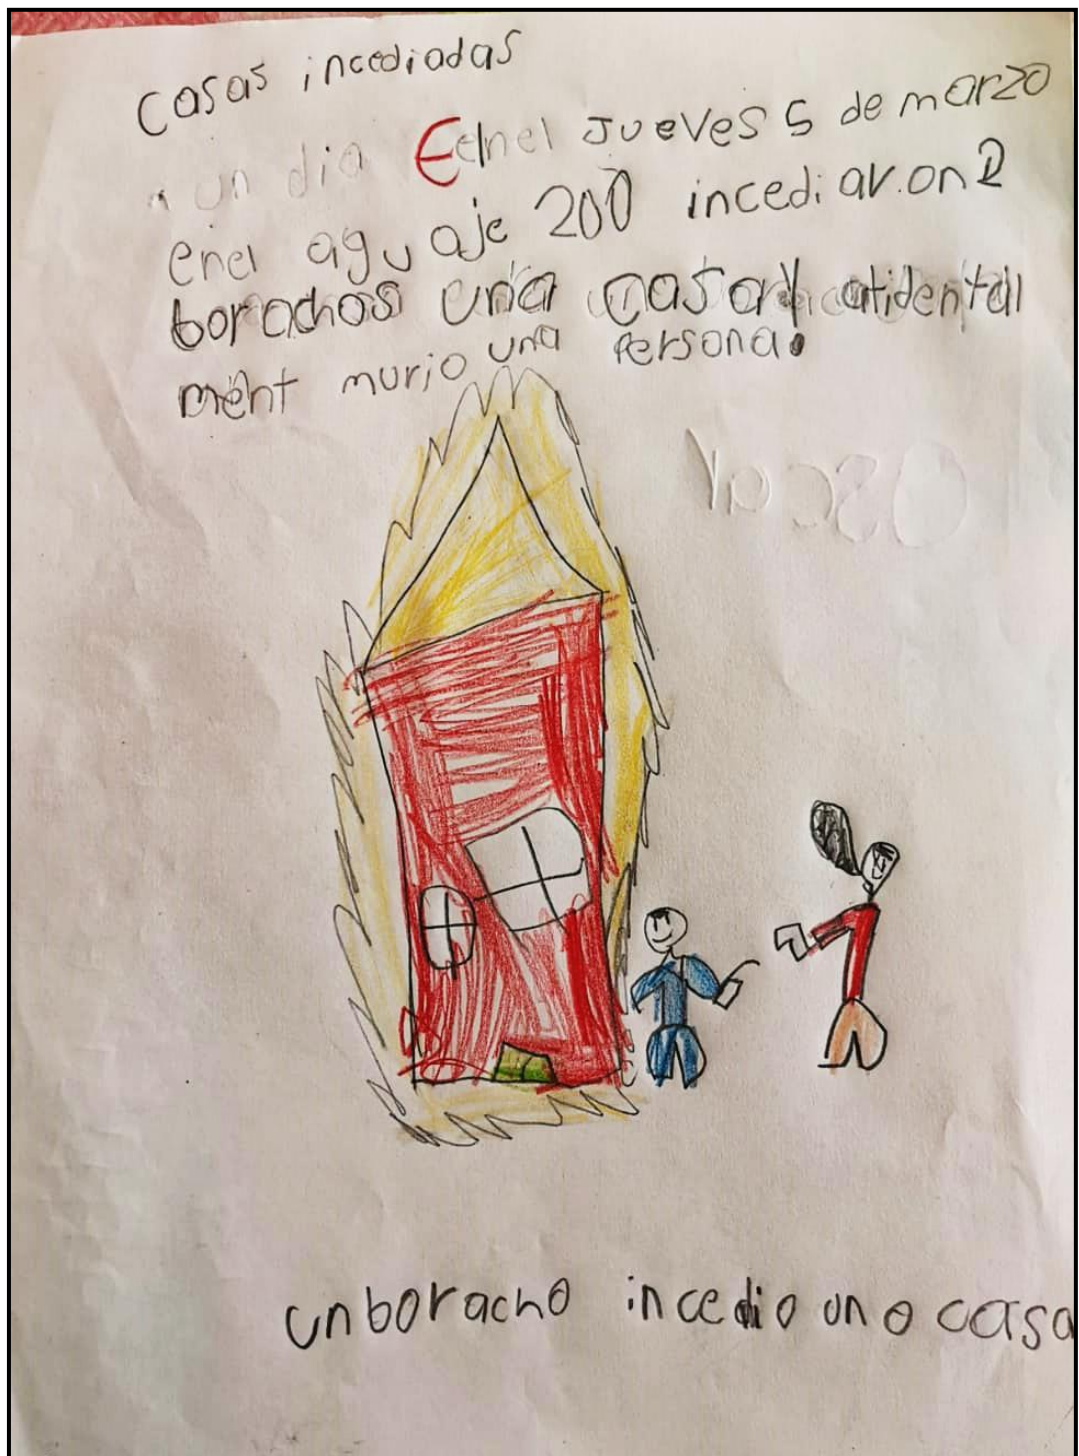 Casas incediadas
un dia Eelnel Jueves 5 de marzo
enel aguaje 200 incediaron 2
borachos una casa y atidentall
ment murio una persona.
Oscar
unboracho incedio una casa